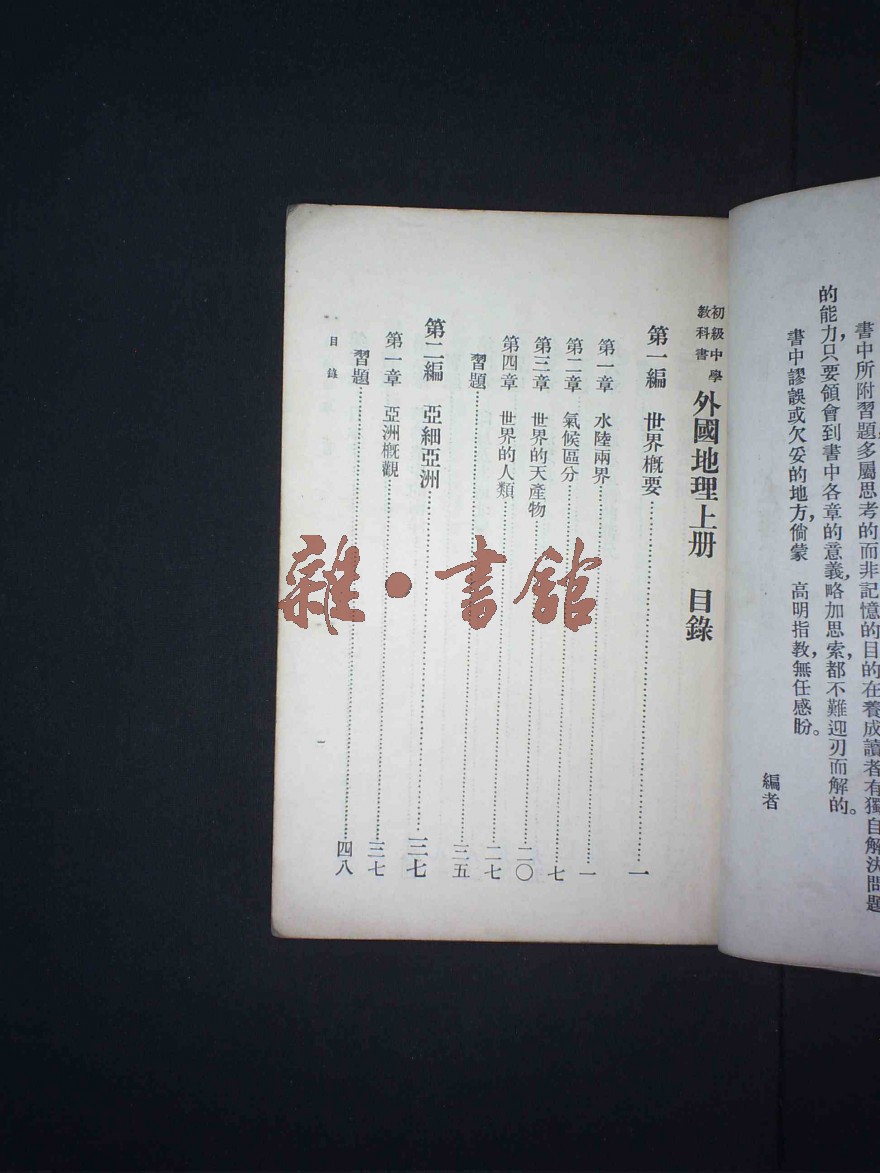 書中所附習題，多屬思考的而非記憶的目的在養成讀者有獨自解決問題
的能力，只要領會到書中各章的意義，略加思索，都不難迎刃而解的。
書中謬誤或欠妥的地方，倘蒙　高明指教，無任感盼。
編者
初級中學
教科書
外國地理上册　目錄
第一編　世界概要……一
第一章　水陸兩界……一
第二章　氣候區分……七
第三章　世界的天產物……二〇
第四章　世界的人類……二七
習題……三五
第二編　亞細亞洲……三七
第一章　亞洲概觀……三七
習題……四八
目錄
一
雜·書館